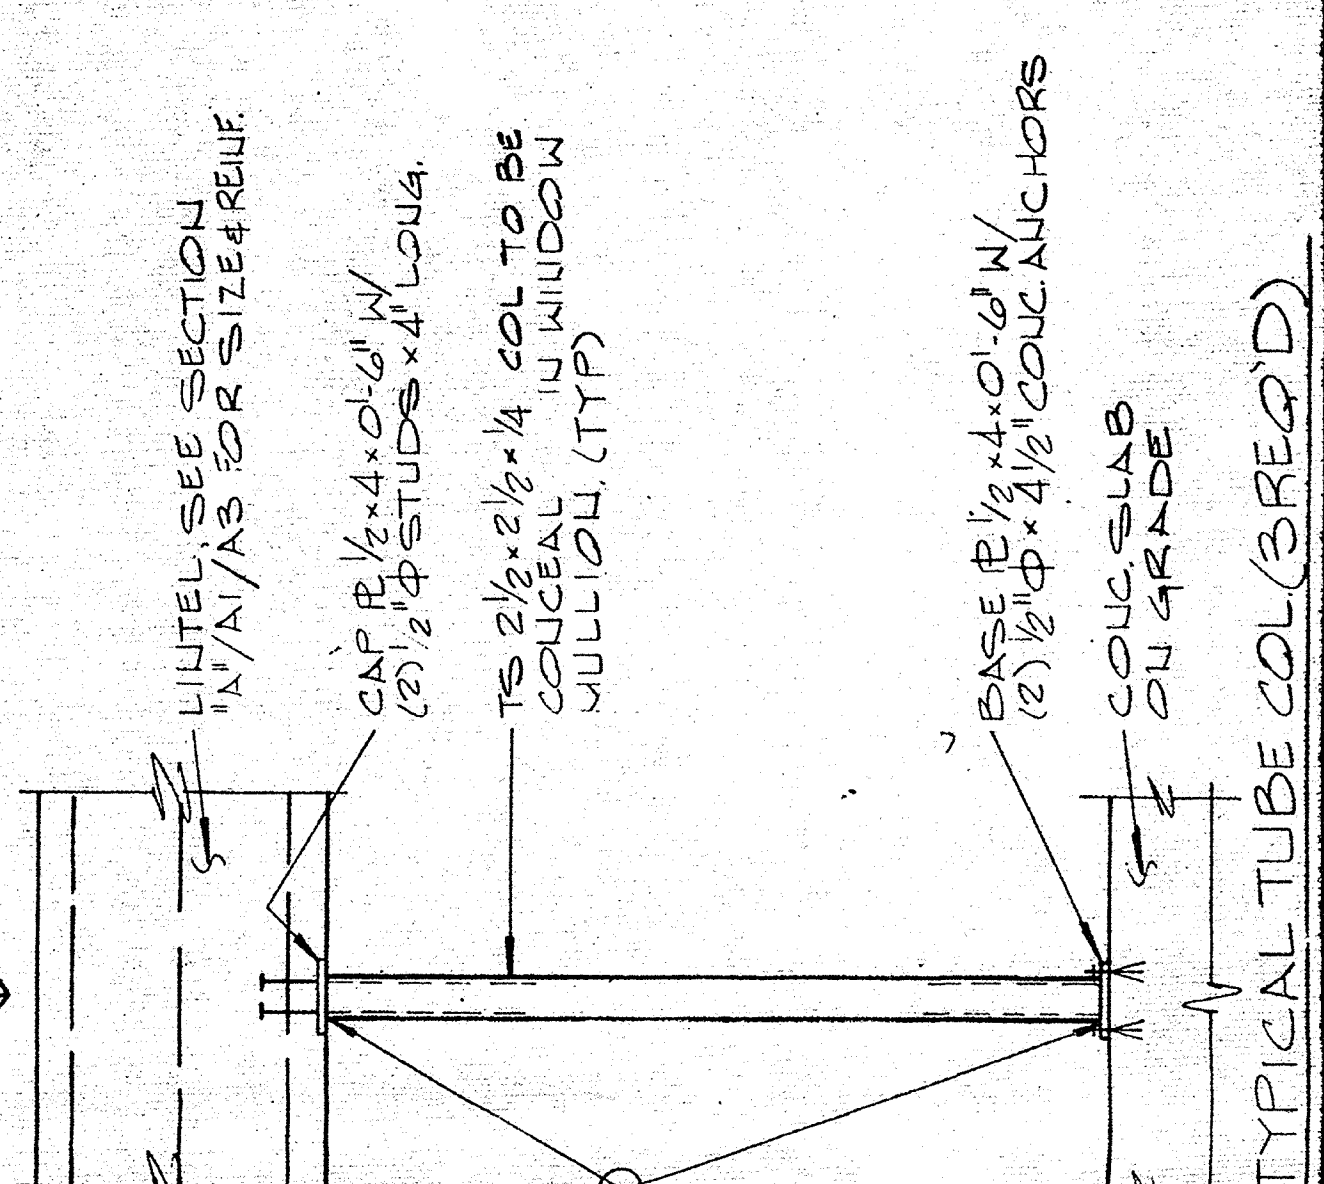 LINTEL, SEE SECTION
"A"/A1/A3 FOR SIZE & REINF.
CAP PL 1/2 x 4 x 0'-6" W/
(2) 1/2" Φ STUDS x 4" LONG.
TS 2 1/2 x 2 1/2 x 1/4 COL TO BE
CONCEAL IN WINDOW
MULLION. (TYP)
BASE PL 1/2 x 4 x 0'-6" W/
(2) 1/2" Φ x 4 1/2" CONC. ANCHORS
CONC. SLAB
ON GRADE
TYPICAL TUBE COL. (3 REQ'D)